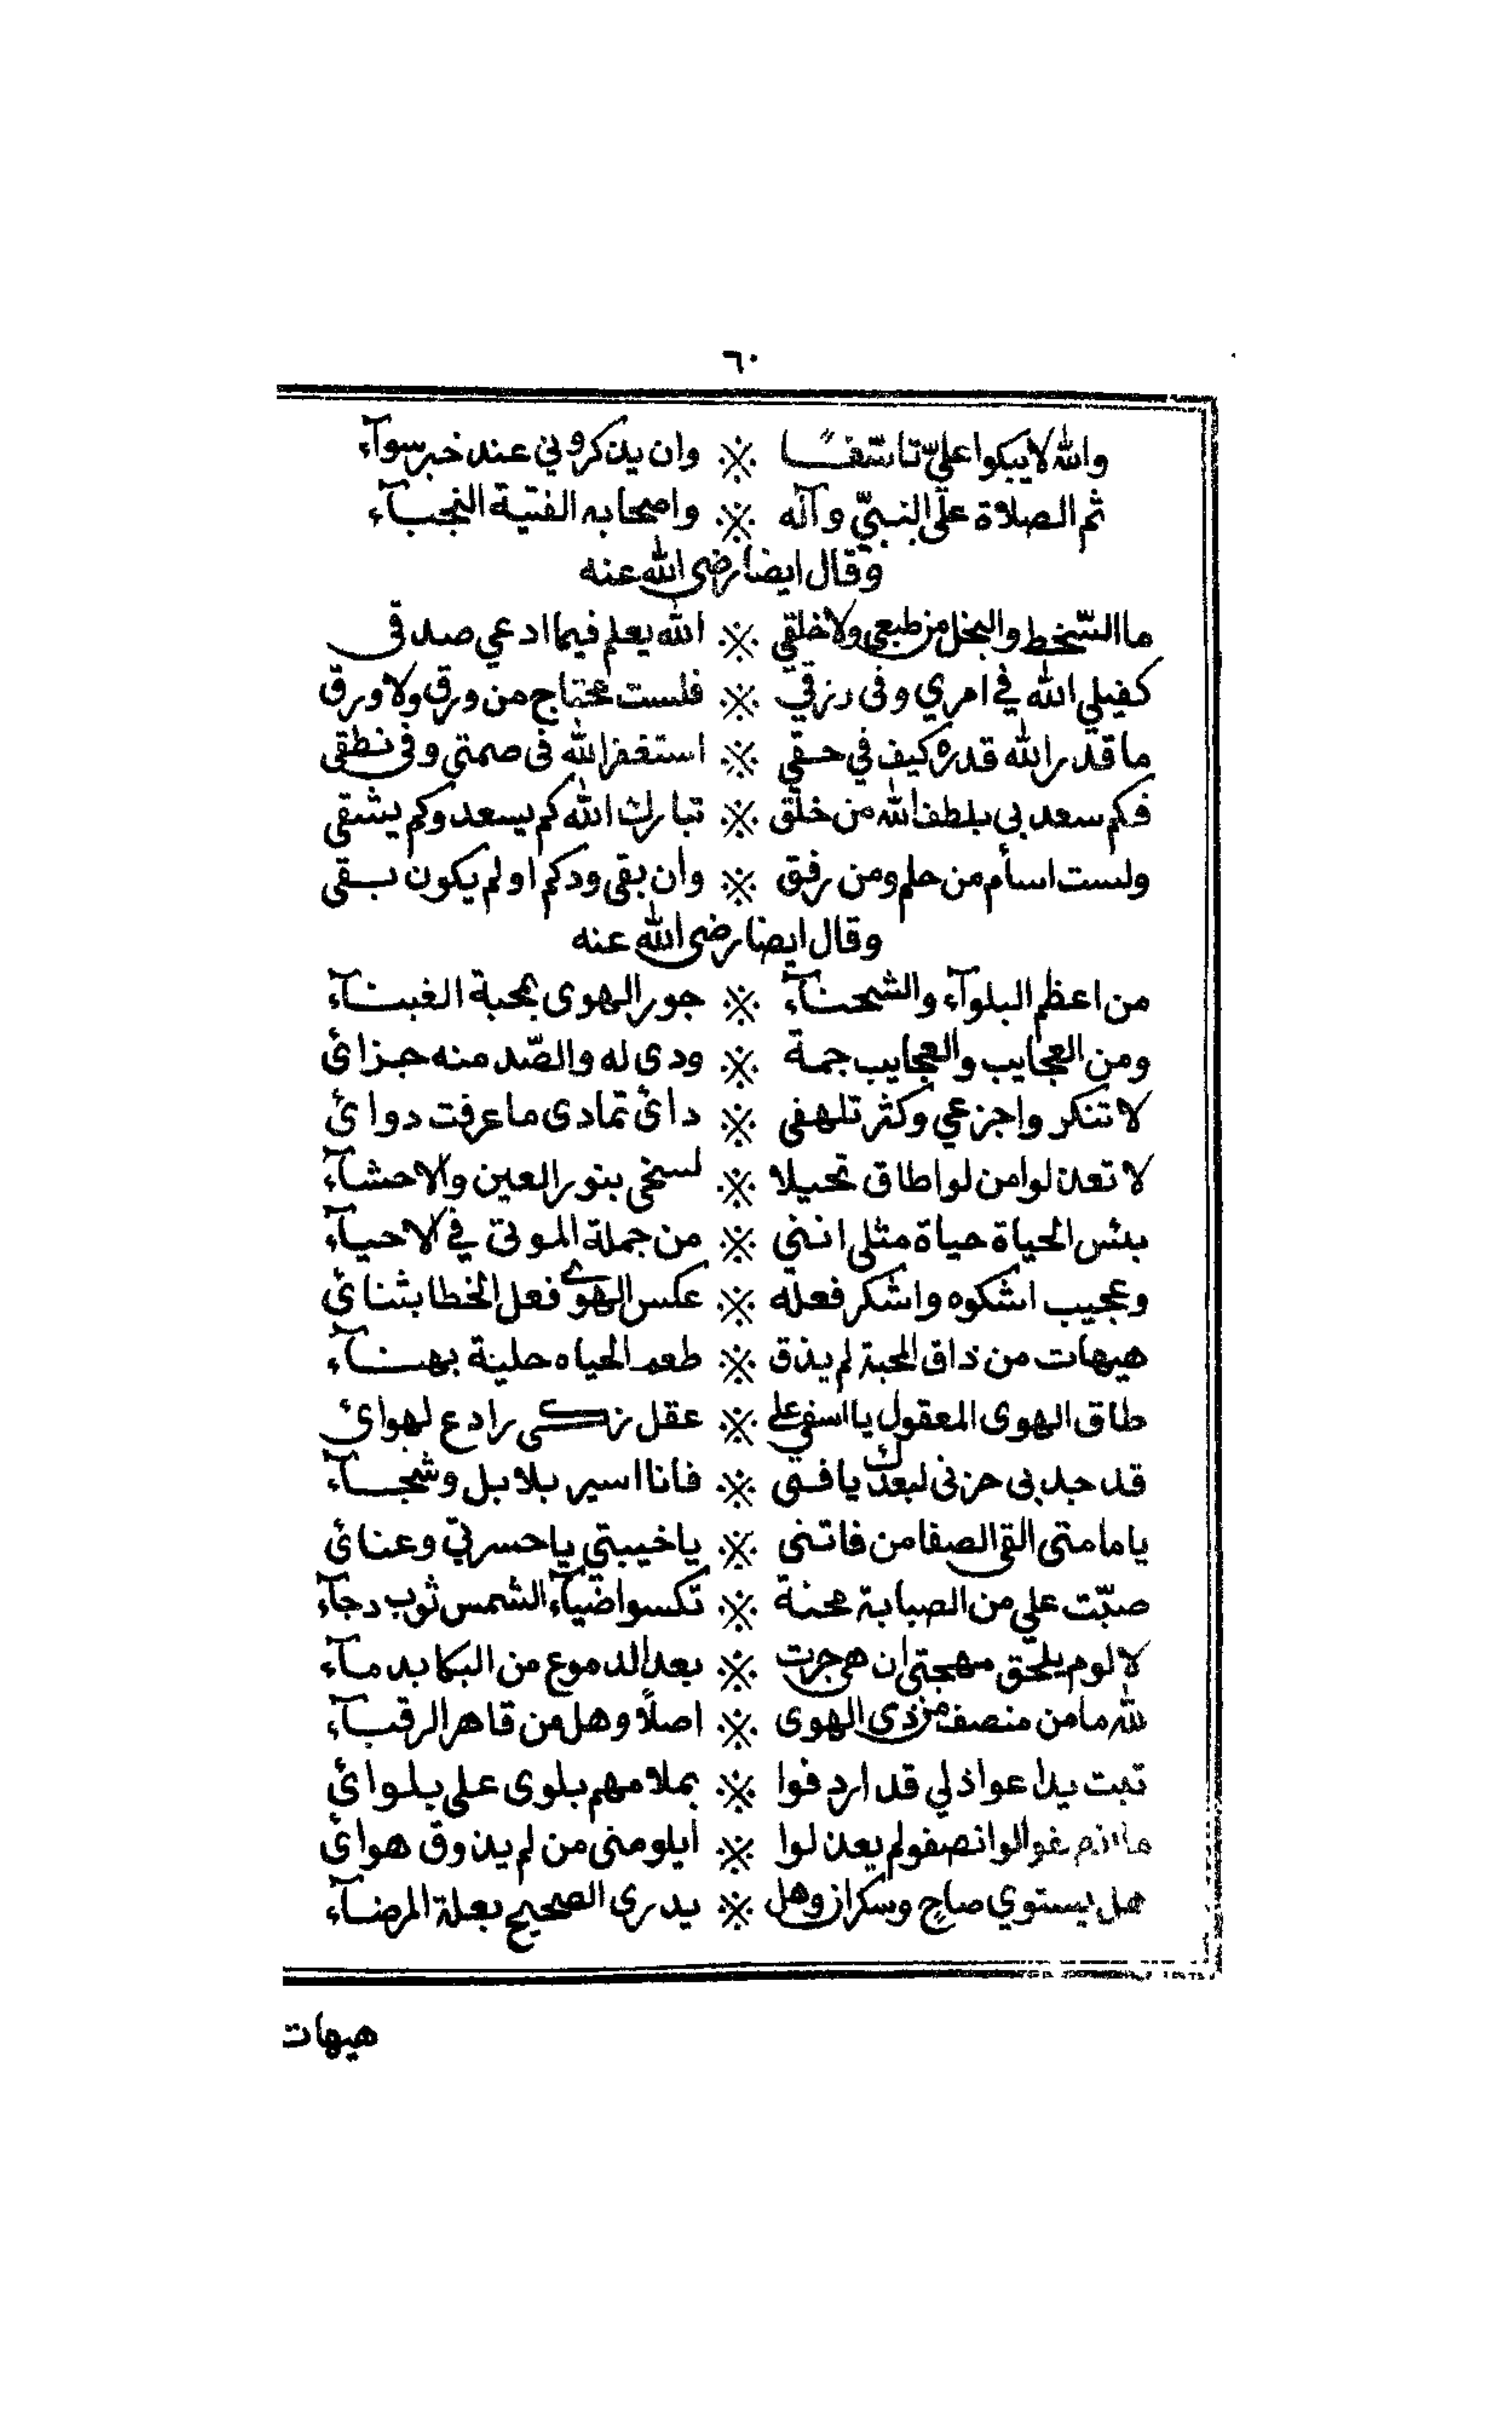 ٦٠
والله لا يبكوا عليّ تاسّفًا ※ وان يذكروني عند خبر سوآء
ثم الصلاة على النبيّ وآله ※ واصحابه الفتية النجبآء
وقال ايضا رضى الله عنه
ما السّخط والبخل من طبعي ولا خلقي ※ الله يعلم فيما ادعي صدقى
كفيلي الله في امري وفى رزقي ※ فلست محتاج من ورق ولا ورق
ما قدر الله قدره كيف في حقي ※ استغفر الله فى صمتي وفي نطقى
فكم سعد بي بلطف الله من خلق ※ تبارك الله كم يسعد وكم يشقى
ولست اسأم من حلم ومن رفق ※ وان بقى ودكم او لم يكون بقى
وقال ايضا رضى الله عنه
من اعظم البلوآء والشحنآء ※ جور الهوى بمحبة الغبنآء
ومن العجايب والعجايب جمة ※ ودى له والصّد منه جزائ
لا تنكر واجزعي وكثر تلهفى ※ دائ تمادى ما عرفت دوائ
لا تعذلوا من لو اطاق تحيلا ※ لسخى بنور العين والاحشآء
بئس الحياة حياة مثلى انني ※ من جملة الموتى في الاحيآء
وعجيب اشكوه واشكر فعله ※ عكس الهوى فعل الخطا بثنائ
هيهات من ذاق المحبة لم يذق ※ طعم الحياه حلية بهنآء
طاق الهوى المعقول يا اسفي على ※ عقل زكى رادع لهوائ
قد جد بى حزنى لبعدك يا فتى ※ فانا اسير بلابل وشجآء
ياما متى القى الصفا من فاتنى ※ يا خيبتي يا حسرتي وعنائ
صبّت علي من الصبابة محنة ※ تكسوا ضيآء الشمس ثوب دجآء
لا لوم يلحق مهجتي ان هى جرت ※ بعد الدموع من البكا بدمآء
لله ما من منصف من ذى الهوى ※ اصلًا وهل من قاهر الرقبآء
تبت يدا عواذلي قد اردفوا ※ بملامهم بلوى على بلوائ
ما انصفوا لو انصفو لم يعذلوا ※ أيلومنى من لم يذوق هوائ
هل يستوي صاحٍ وسكران وهل ※ يدرى الصحيح بعلة المرضآء
هيهات